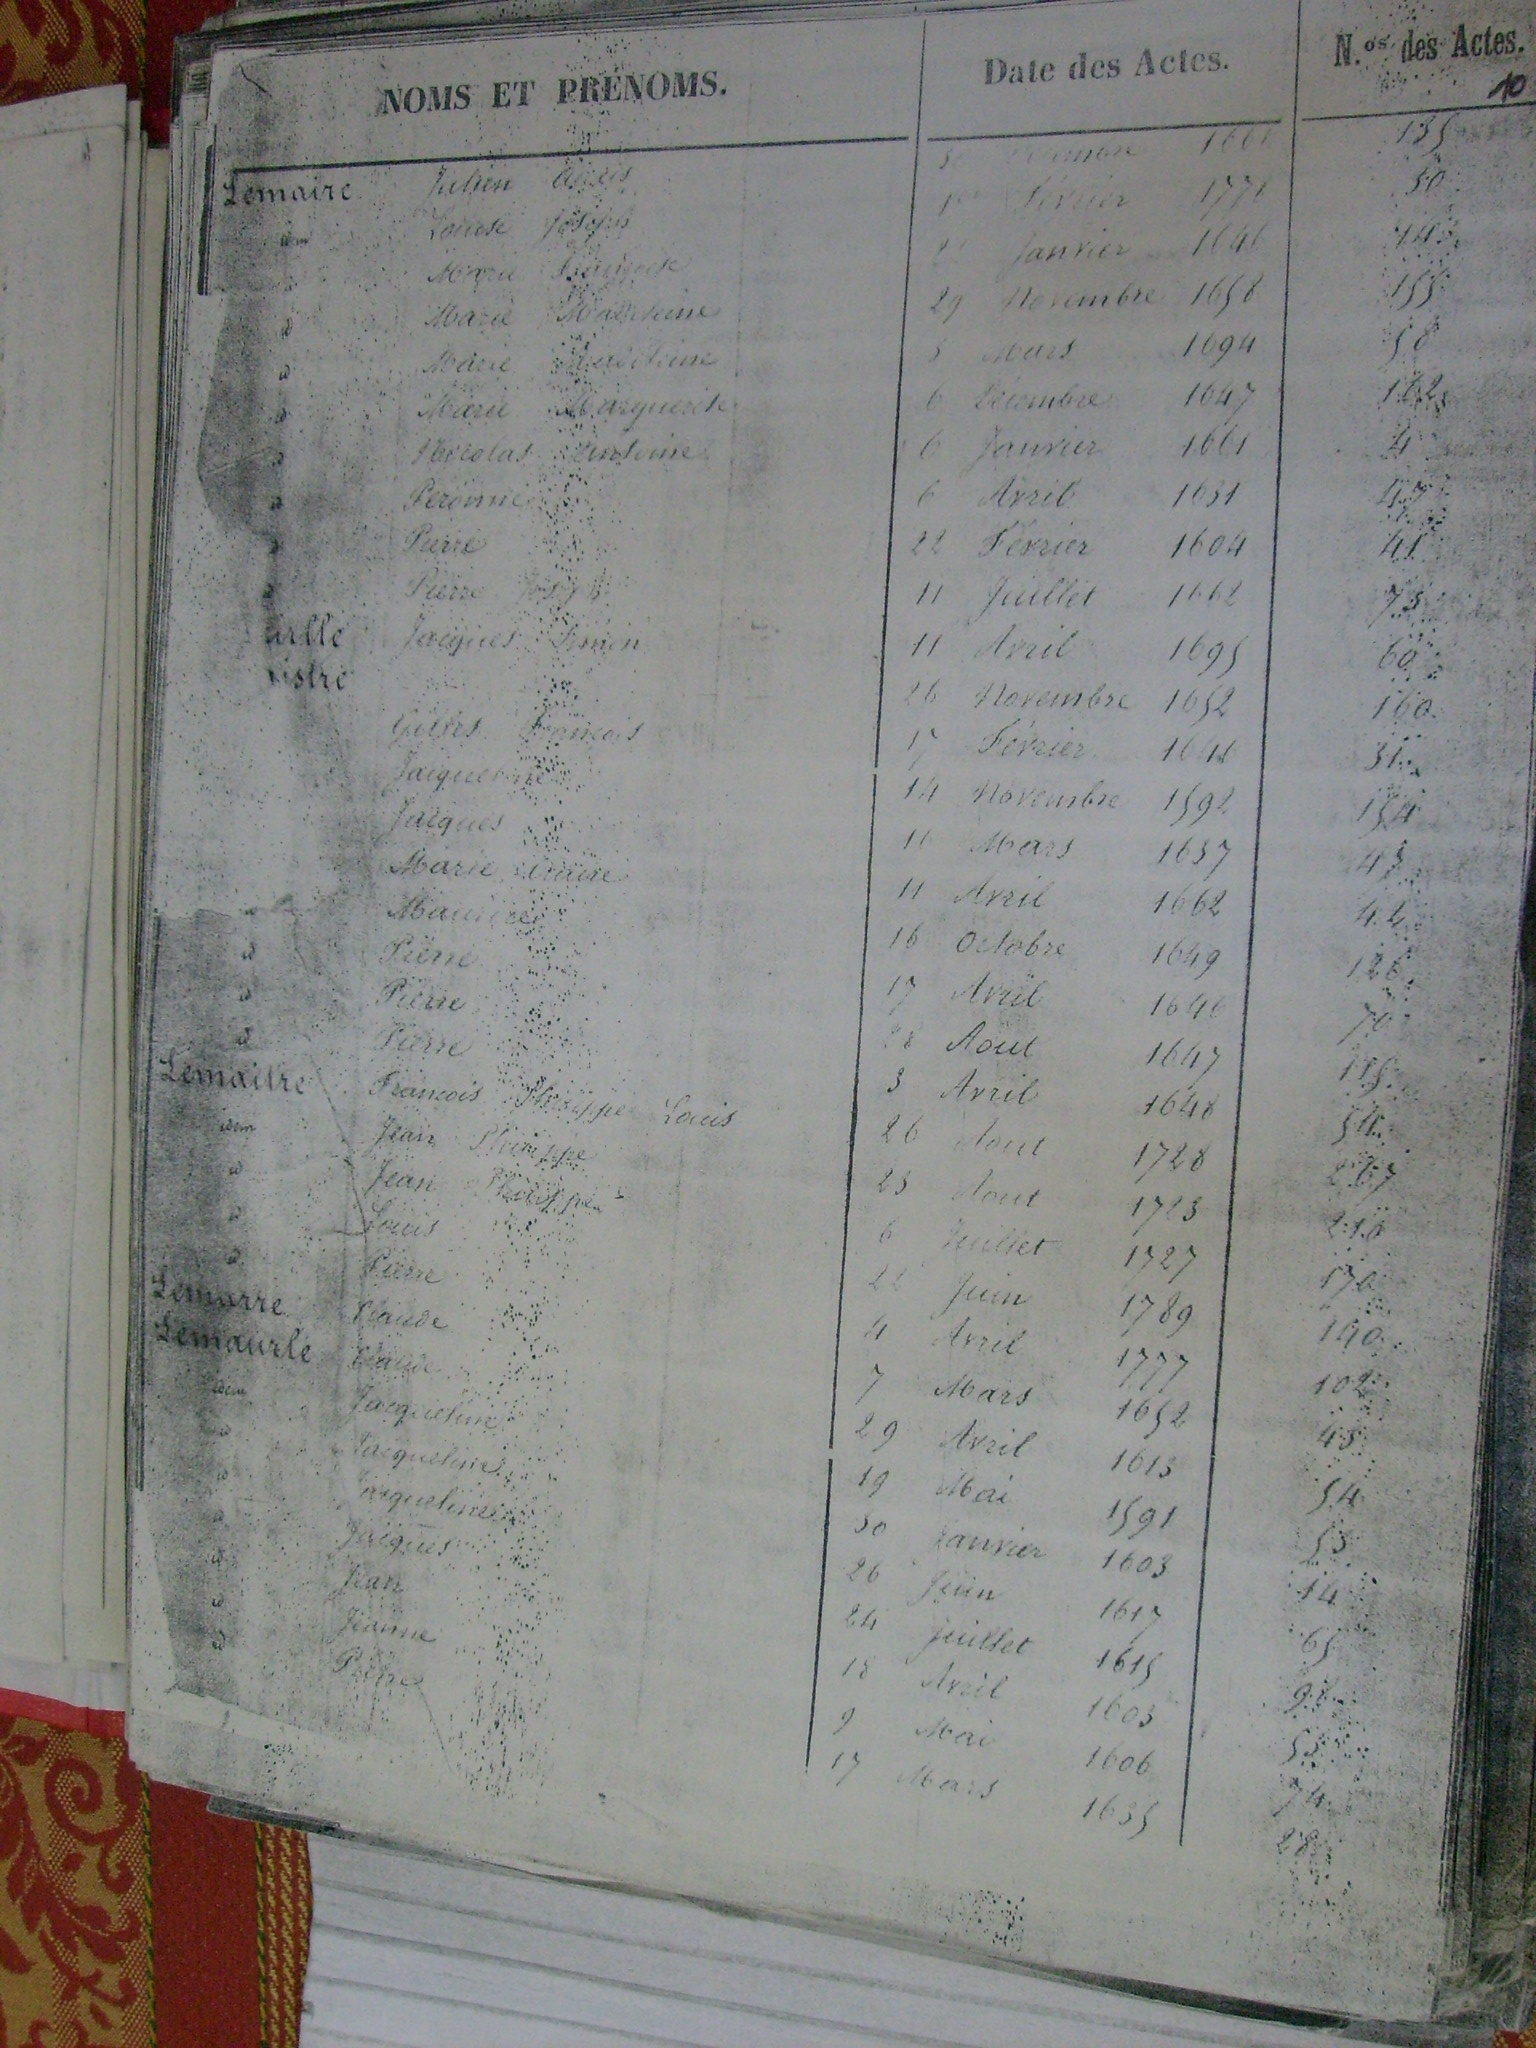 NOMS ET PRÉNOMS. Date des Actes. N.os des Actes.
10
Lemaire Julien Alexis 1661 135
idem Louise Joseph 1er Février 1771 50
id Marie Françoise Janvier 1646
id Marie Madeleine 29 Novembre 1658 155
id Marie Madeleine 3 Mars 1694 58
id Marie Marguerite 6 Décembre 1647 162
id Nicolas Antoine 6 Janvier 1661 4
id Peronne 6 Avril 1631 47
id Pierre 22 Février 1604 41
id Pierre Joseph 11 Juillet 1662 73
Jacques Simon 11 Avril 1695 60
26 Novembre 1652 160
Gilles François 17 Février 1646 31
Jacqueline 14 Novembre 1592 154
Jacques 16 Mars 1637 43
Marie Anne 11 Avril 1662 42
id Maurice 16 Octobre 1649 126
id Pierre 17 Avril 1646 70
id Pierre 28 Aout 1647 115
id Pierre 3 Avril 1648 54
Lemaitre François Philippe Louis 26 Aout 1728 267
idem Jean Philippe 23 Aout 1723 210
id Jean Philippe 6 Juillet 1727 170
id Louis 22 Juin 1789 190
id Pierre 4 Avril 1777 102
Lemarre Claude 7 Mars 1652 45
Lemaurle Claude 29 Avril 1613 54
idem Jacqueline 19 Mai 1591 53
id Jacqueline 30 Janvier 1603 14
id Jacqueline 26 Juin 1617 65
id Jacques 24 Juillet 1615 98
id Jean 18 Avril 1603 53
id Jeanne 9 Mai 1606 74
id Pierre 17 Mars 1635 28